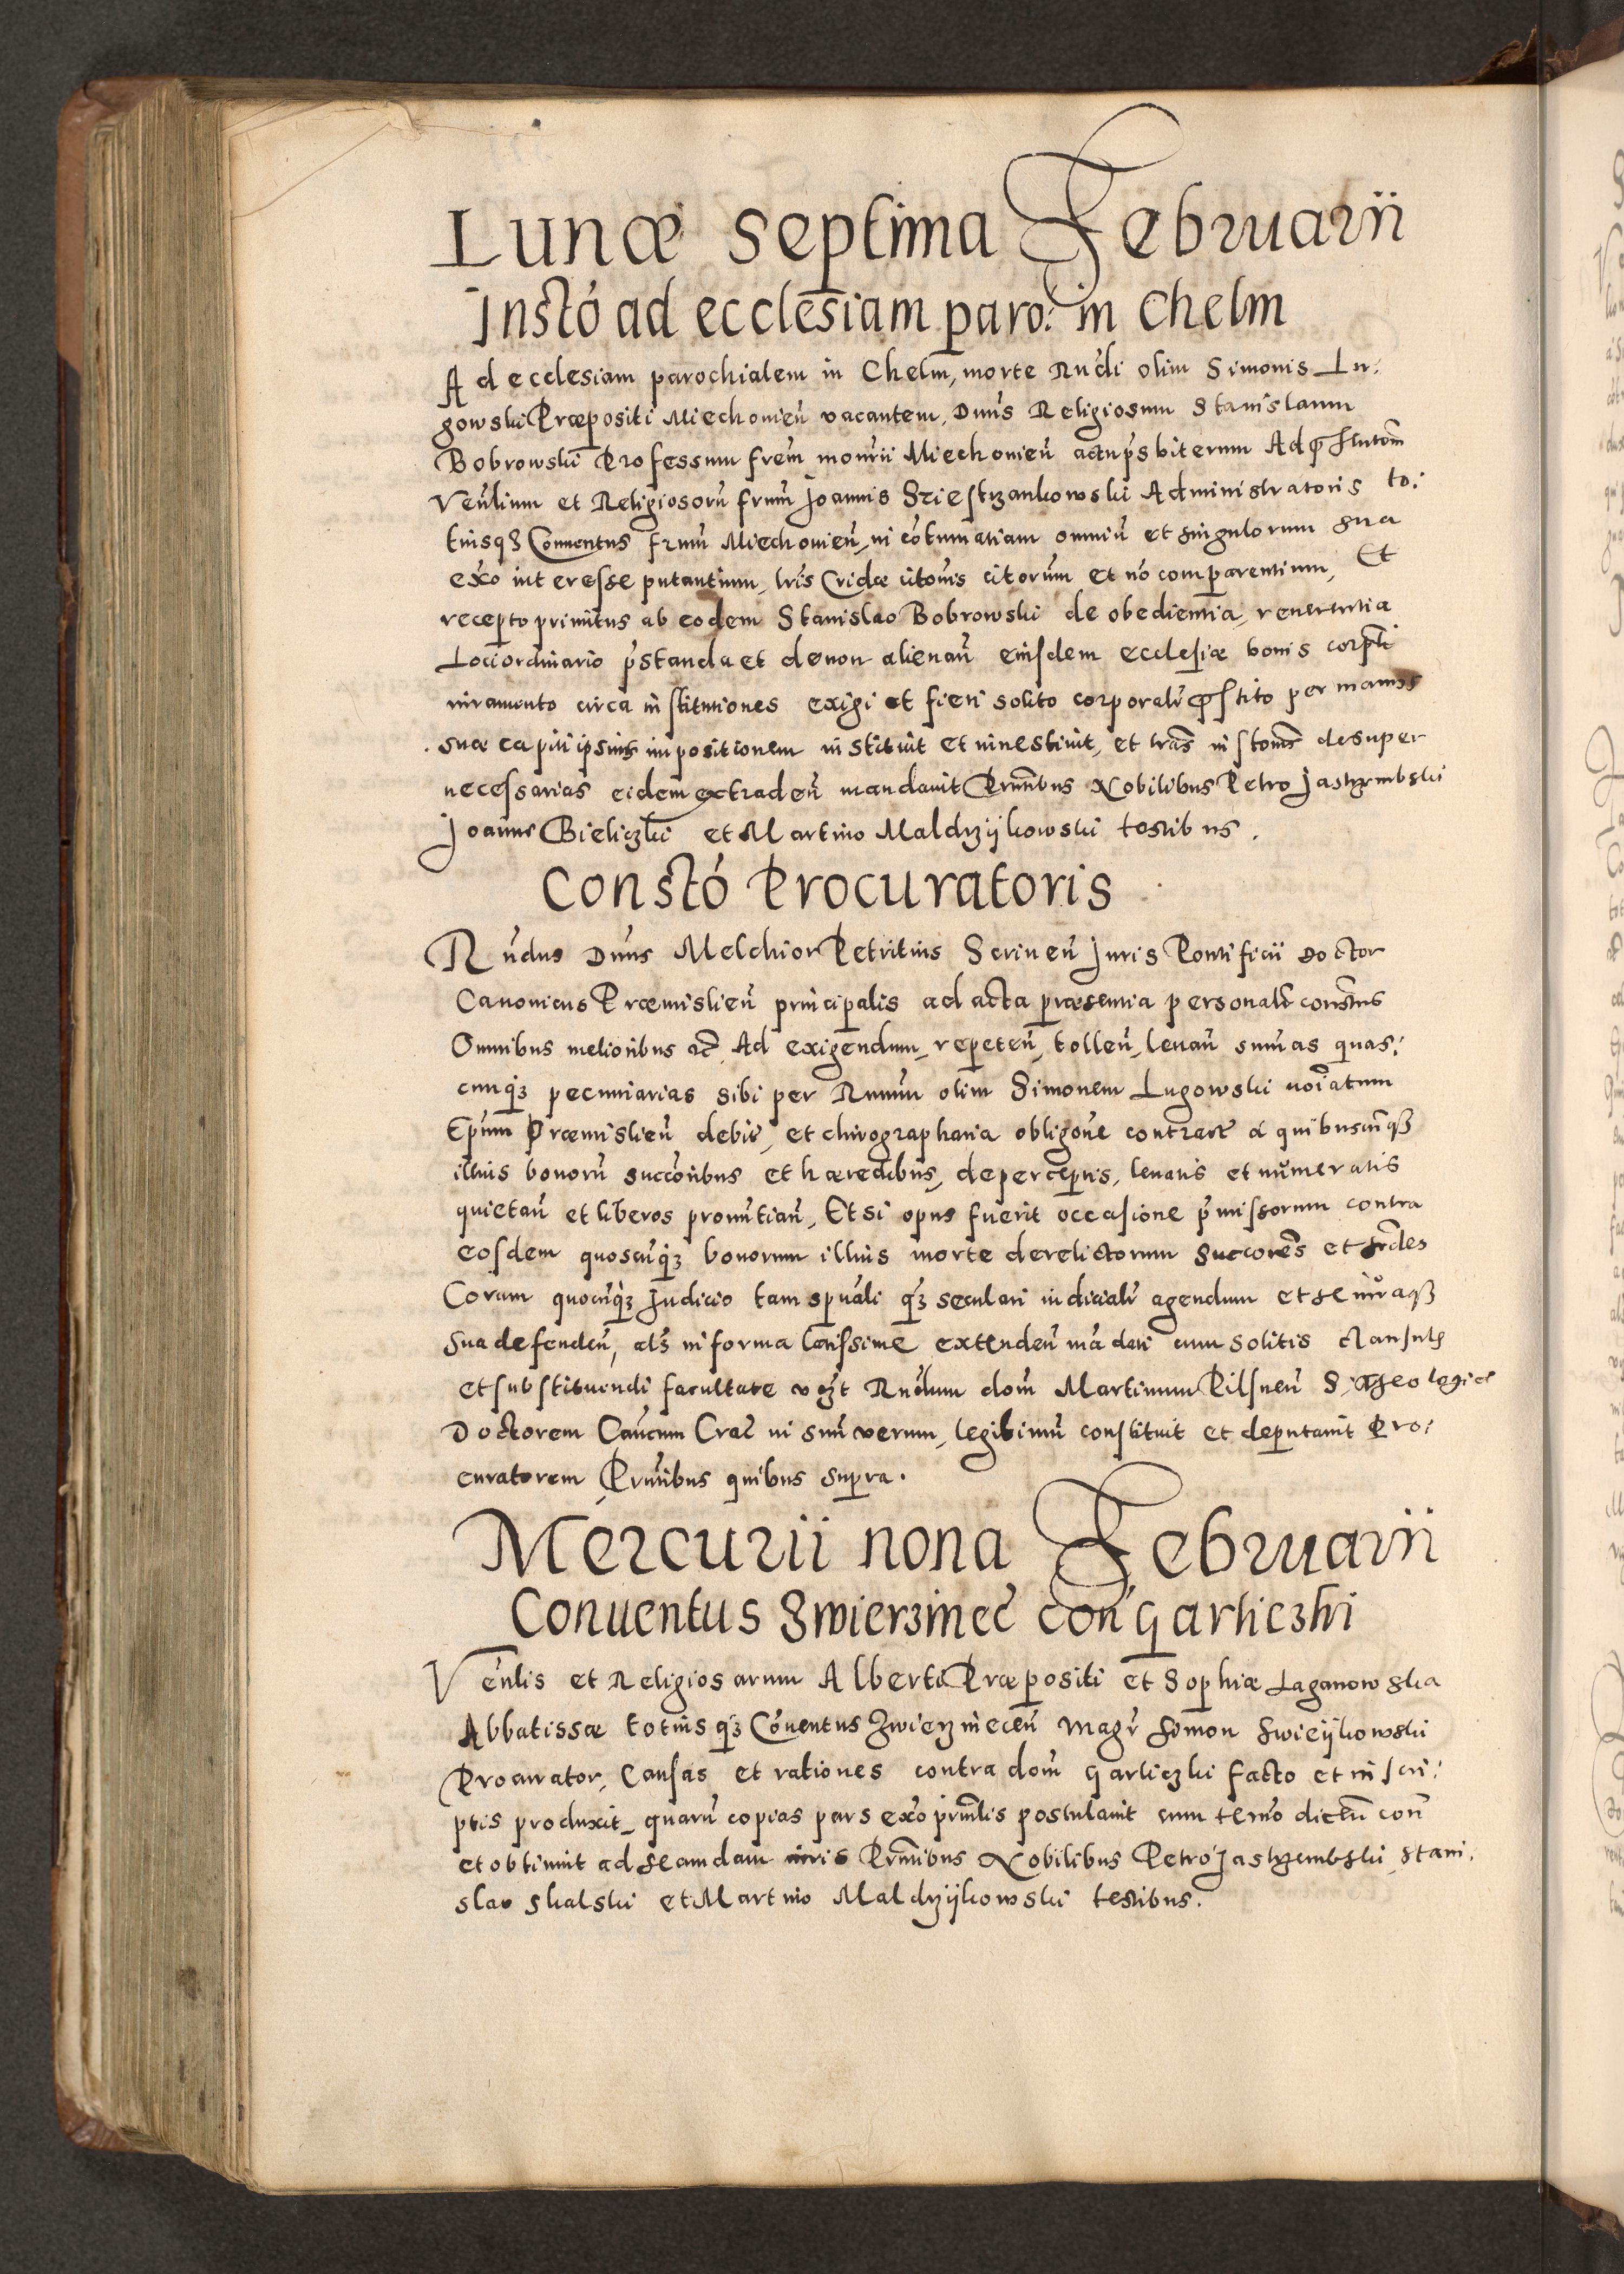 Lunæ septima Februarii
Instó ad ecclesiam paro: in Chelm
Ad ecclesiam parochialem in Chelm, morte Rndi olim Simonis Lu:
gowski Præpositi Miechovień vacantem, Dnus Religiosum Stanislaum
Bobrowski Professum frem monrii Miechovień actu prsbiterum Ad
Venlium et Religiosorū frum Joannis Administratoris to:
tiusqз Conventus frum Miechovień, in cōtumatiam omniū et singulorum sua
exo interesse putantium, lris Cridæ citorum et nō comparentium, Et
recepto primitus ab eodem Stanislao Bobrowski de obedientia, reverentia
Loci ordinario prstanda et de non alienań eiusdem ecclesiæ bonis corpli
iuramento circa institutiones exigi et fieri solito corporalr pstito per manus
suæ capiti ipsius impositionem instituit et investivit, et lras desuper
necessarias eidem extradeń mandavit Prntibus Nobilibus Petro Jastrzembski
Joanne Bieliczki et Martino Maldrzijkowski testibus.
Constó Procuratoris
Rndus Dnus Melchior Petritius Scrineń Juris Pontificii Doctor
Canonicus Præmislień principalis ad acta præsentia personalr
Omnibus melioribus etc Ad exigendum, repeteń, tolleń, levań sumas quas:
cunqз pecuniarias sibi per Rnum olim Simonem Lugowski noiatum
Epum Præmislień debit, et chirographaria obligone contract a quibuscunqз
illius bonorū succoribus et hæredibus, de perceptis, levatis et numeratis
quietań et liberos pronuntiań, Et si opus fuerit occasione prmissorum contra
eosdem quoscunqз bonorum illius morte derelictorum succores et
Coram quocunqз Judicio tam spuali qз seculari iudicialr agendum et se iuraqз
sua defendeń, als in forma latissime extendeń mādati cum solitis clausulis
et substituendi facultate Rndum dom Martinum Pilsneń S. Theologiæ
Doctorem Cancum Crac in suū verum, legitimū constituit et deputavit Pro:
curatorem Prntibus quibus supra.
Mercurii nona Februarii
Conventus Zwierzinec con Garliczki
Venlis et Religiosarum Alberti Præpositi et Sophiæ Laganowska
Abbatissæ totiusqз Cōventus Zwierzineceń Magr Simon
Procurator, Causas et rationes contra dom Garliczki facto et in scri:
ptis produxit, quarū copias pars exo prnlis postulavit cum termo con
et obtinuit ad scandam iuris Prntibus Nobilibus Petro Jastrzembski, Stani:
slao Skalski et Martino Maldrzijkowski testibus.